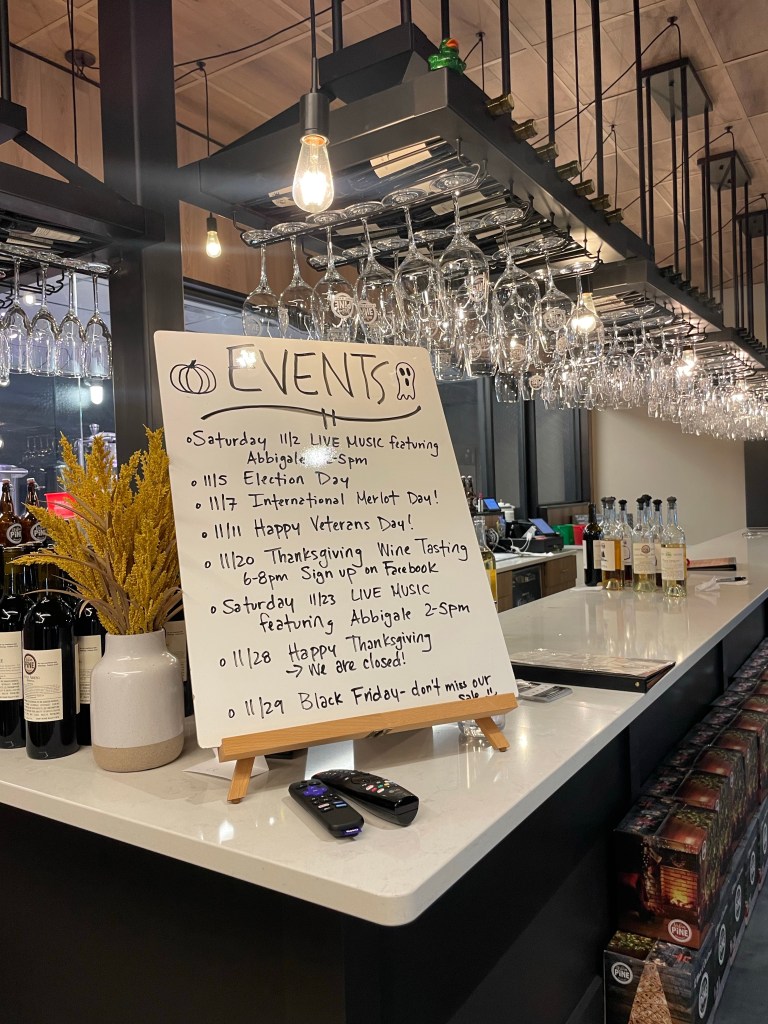 EVENTS
Saturday 11/2 LIVE MUSIC featuring
Abbigale 2-5pm
11/5 Election Day
11/7 International Merlot Day!
11/11 Happy Veterans Day!
11/20 Thanksgiving Wine Tasting
6-8pm Sign up on Facebook
Saturday 11/23 LIVE MUSIC
featuring Abbigale 2-5pm
11/28 Happy Thanksgiving
→ We are closed!
11/29 Black Friday - don't miss our
sale!!
PINE
PINE
PINE
PINE